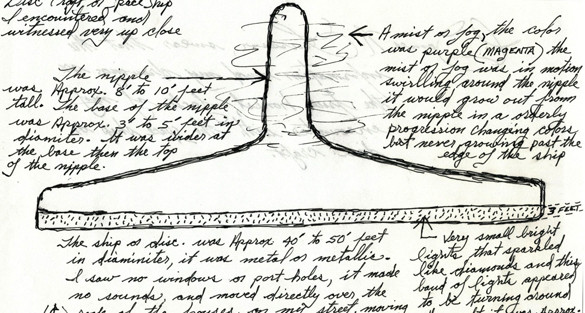 Disc (
I encountered, and
witnessed very up close
The nipple
was Approx. 8' to 10' feet
tall. the base of the nipple
was Approx. 3' to 5' feet in
diamiter. It was wider at
the base then the top
of the nipple.
A mist or fog, the color
was purple (MAGENTA) the
mist or fog was in motion
swirlling around the nipple
it would grow out from
the nipple in a orderly
progression changing colors,
but never growing past the
edge of the ship
3 FEET.
The ship or disc. was Approx 40' to 50' feet
in diaminiter, it was metal or metallic.
I saw no windows or port-holes, it made
no sounds, and moved directly over the
of the houses, on met street, moving
Very small bright
lights that sparkled
like diamonds and this
band of lights appeared
to be turning around
it was Approx